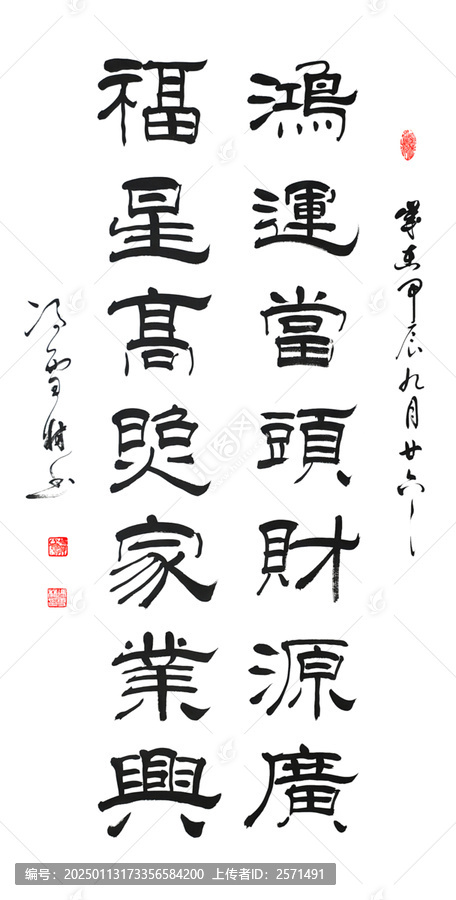 歲在甲辰九月廿六
鴻運當頭財源廣
福星髙照家業興
冯雪书
编号：20250113173356584200 上传者ID：2571491